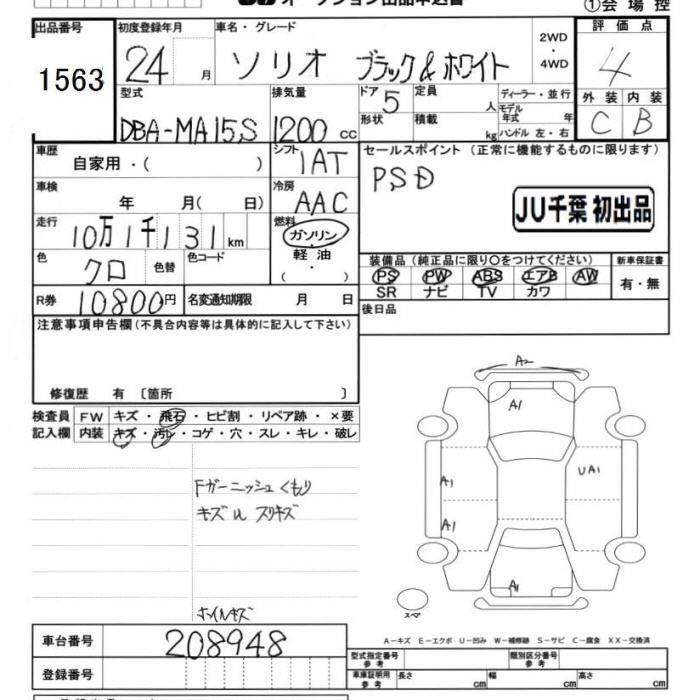 ①会 場 控
出品番号
1563
初度登録年月
24 月
車名・グレード
ソリオ ブラック&ホワイト
2WD
・
4WD
評 価 点
4
外 装 内 装
C B
型式
DBA-MA15S
排気量
1200 cc
ドア 5
形状
定員 人
積載 kg
ディーラー・並行
モデル年式 年
ハンドル 左・右
車歴
自家用・( )
シフト
IAT
セールスポイント (正常に機能するものに限ります)
PSD
JU千葉 初出品
車検
年 月( 日)
冷房
AAC
走行
10万1千131km
燃料
ガソリン
・
軽 油
・
( )
色
クロ 色替
色コード
装備品 (純正品に限り○をつけてください)
PS PW ABS エアB AW
SR ナビ TV カワ
新車保証書
有・無
R券 10800円
名変通知期限 月 日
後日品
注意事項申告欄(不具合内容等は具体的に記入して下さい)
修復歴 有 〔箇所 〕
検査員
記入欄
FW キズ・飛石・ヒビ割・リペア跡・×要
内装 キズ・汚レ・コゲ・穴・スレ・キレ・破レ
Fガーニッシュ くもり
キズ ハ スリキズ
ホイルキズ
A2
A1
A1
UA1
A1
A1
スペア
車台番号 208948
登録番号
A-キズ E-エクボ U-凹み W-補修跡 S-サビ C-腐食 XX-交換済
型式指定番号
参考
類別区分番号
参考
車庫証明用
参考
長さ cm
幅 cm
高さ cm